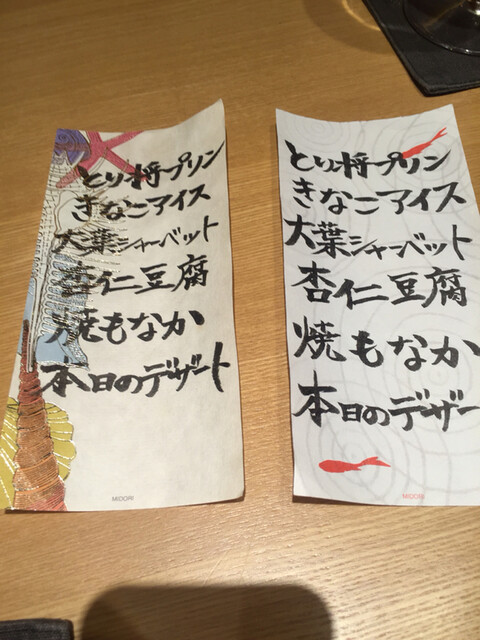 とり将プリン
きなこアイス
大葉シャーベット
杏仁豆腐
焼もなか
本日のデザート
MIDORI
とり将プリン
きなこアイス
大葉シャーベット
杏仁豆腐
焼もなか
本日のデザー
MIDORI